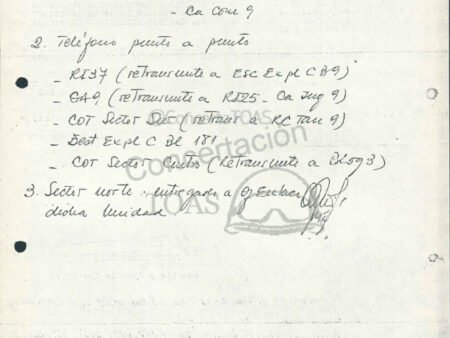 - Ca Com 9
2. Teléfono punto a punto
- RI37 (retransmite a Esc Expl C B 9)
- GA9 (retransmite a RI25 - Ca Ing 9)
- COT Sector Sur (retrans a RC Tan 9)
- Dest Expl C Bl 181
- COT Sector Centro (Retransmite a BLog 3)
3. Sector norte : entregado a Of Enlace
dicha Unidad
Concertación
TOAS